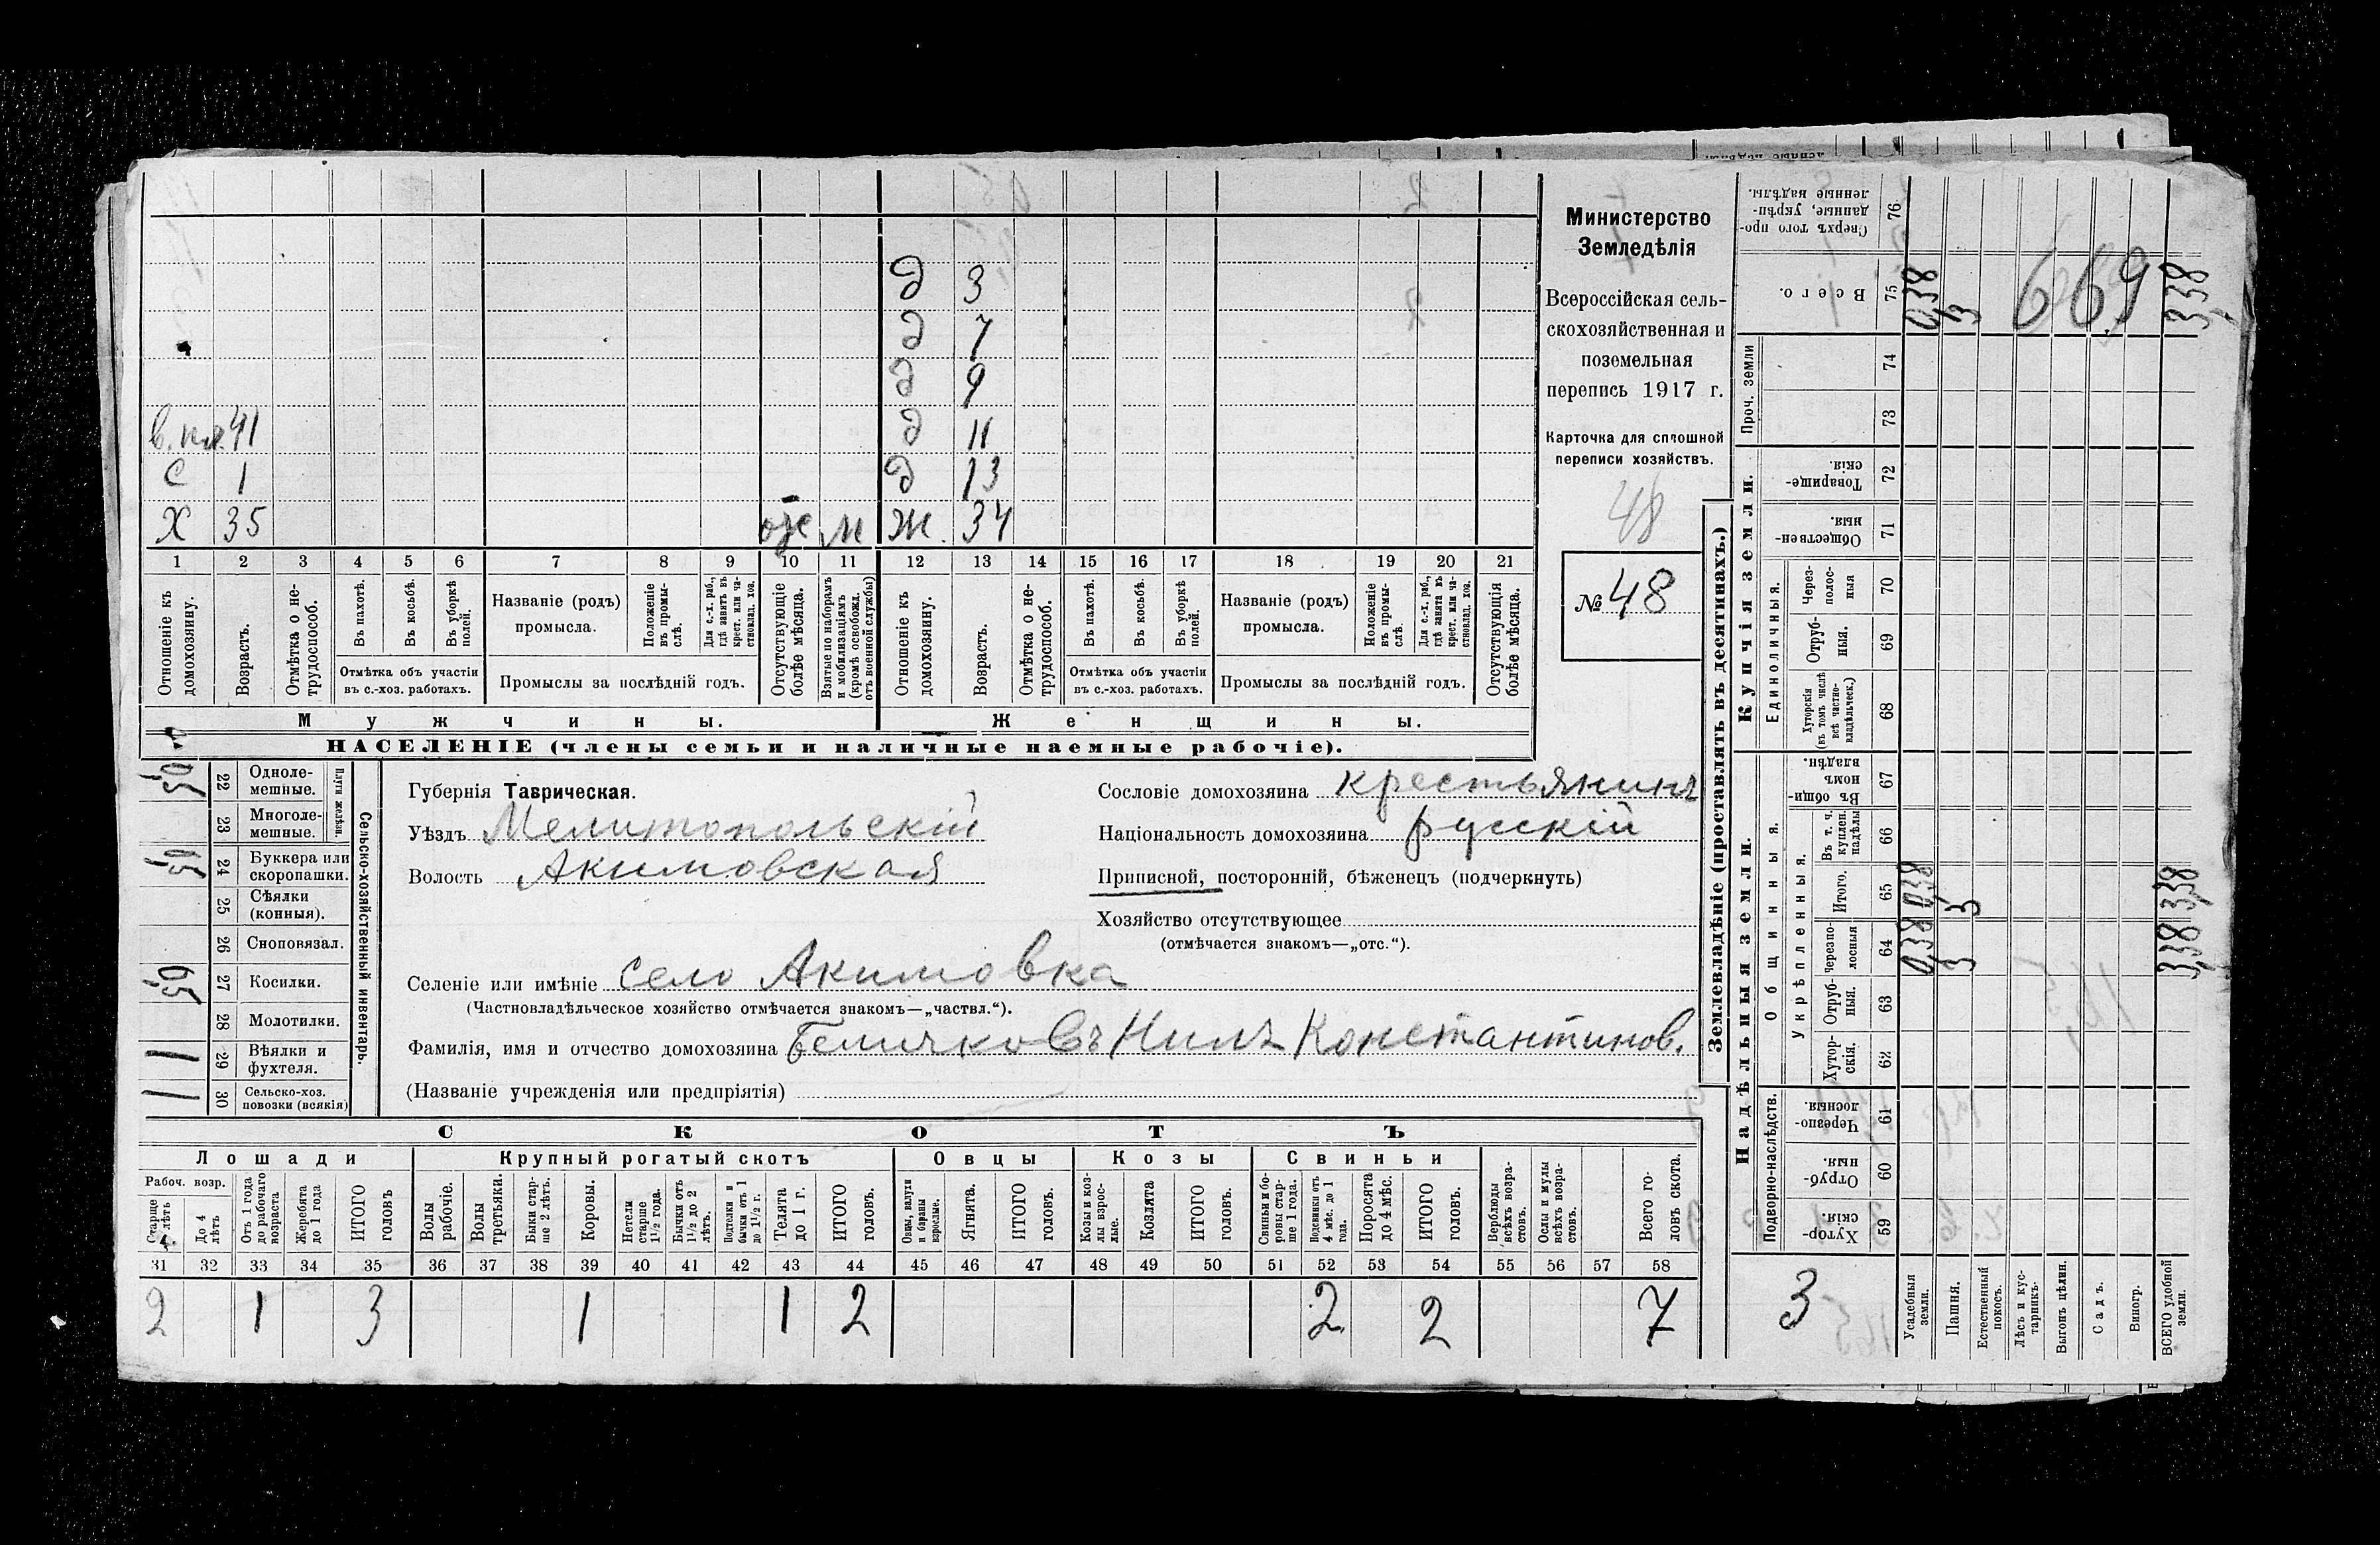 д 3
д 7
д 9
в. пл. 41 д 11
с 1 д 13
Х 35 отс м Ж. 34
1 2 3 4 5 6 7 8 9 10 11 12 13 14 15 16 17 18 19 20 21
Отношеніе къ домохозяину.
Возрастъ.
Отмѣтка о не-трудоспособ.
Въ пахотѣ.
Въ косьбѣ.
Въ уборкѣ полей.
Отмѣтка объ участіи
въ с.-хоз. работахъ.
Названіе (родъ)
промысла.
Положеніе въ промы-слѣ.
Для с.-х. раб., гдѣ занятъ въ крест. или ча-стновлад. хоз.
Промыслы за послѣдній годъ.
Отсутствующіе болѣе мѣсяца.
Взятые по наборамъ и мобилизаціямъ (кромѣ освобожд. отъ военной службы)
Отношеніе къ домохозяину.
Возрастъ.
Отмѣтка о не-трудоспособ.
Въ пахотѣ.
Въ косьбѣ.
Въ уборкѣ полей.
Отмѣтка объ участіи
въ с.-хоз. работахъ.
Названіе (родъ)
промысла.
Положеніе въ промы-слѣ.
Для с.-х. раб., гдѣ занята въ крест. или ча-стновлад. хоз.
Промыслы за послѣдній годъ.
Отсутствующія болѣе мѣсяца.
Мужчины.
Женщины.
НАСЕЛЕНІЕ (члены семьи и наличные наемные рабочіе).
Министерство
Земледѣлія
Всероссійская сель-
скохозяйственная и
поземельная
перепись 1917 г.
Карточка для сплошной
переписи хозяйствъ.
48
№ 48
Сельско-хозяйственный инвентарь.
Плуги желѣзн.
22 Одноле-мешные.
23 Многоле-мешные.
24 Буккера или скоропашки.
25 Сѣялки (конныя).
26 Сноповязал.
27 Косилки.
28 Молотилки.
1 29 Вѣялки и фухтеля.
1 30 Сельско-хоз. повозки (всякія)
Губернія Таврическая.
Уѣздъ Мелитопольскій
Волость Акимовская
Сословіе домохозяина крестьянинъ
Національность домохозяина русскій
Приписной, посторонній, бѣженецъ (подчеркнуть)
Хозяйство отсутствующее
(отмѣчается знакомъ—„отс.“).
Селеніе или имѣніе село Акимовка
(Частновладѣльческое хозяйство отмѣчается знакомъ—„частвл.“).
Фамилія, имя и отчество домохозяина Беличковъ Нилъ Константинов.
(Названіе учрежденія или предпріятія)
СКОТЪ
Лошади
Крупный рогатый скотъ
Овцы
Козы
Свиньи
Рабоч. возр.
Старше 4 лѣтъ
До 4 лѣтъ
Отъ 1 года до рабочаго возраста
Жеребята до 1 года
ИТОГО головъ
Волы рабочіе.
Волы третьяки.
Быки стар-ше 2 лѣтъ.
Коровы.
Нетели старше 1½ года.
Бычки отъ 1½ до 2 лѣтъ.
Подтелки и бычки отъ 1 до 1½ г.
Телята до 1 г.
ИТОГО головъ.
Овцы, валухи и бараны взрослые.
Ягнята.
ИТОГО головъ.
Козы и коз-лы взрос-лые.
Козлята
ИТОГО головъ.
Свиньи и бо-ровы стар-ше 1 года.
Подсвинки отъ 4 мѣс. до 1 года.
Поросята до 4 мѣс.
ИТОГО головъ.
Верблюды всѣхъ возра-стовъ.
Ослы и мулы всѣхъ возра-стовъ.
Всего го-ловъ скота.
31 32 33 34 35 36 37 38 39 40 41 42 43 44 45 46 47 48 49 50 51 52 53 54 55 56 57 58
2 1 3 1 1 2 2 2 7
Землевладѣніе (проставлять въ десятинахъ.)
Надѣльныя земли.
Купчія земли.
Проч. земли
Сверхъ того про-данные, укрѣп-ленные надѣлы. 76
Всего. 75 0,38 3 669 3,38
74
73
Товарище-скія. 72
Обществен-ныя. 71
Единоличныя.
Через-полос-ныя 70
Отруб-ныя. 69
Хуторскія (въ томъ числѣ всѣ частно-владѣльческ.) 68
Общинныя.
Въ общи-номъ владѣн. 67
Укрѣпленныя.
Въ т. ч. куплен. надѣлы 66
Итого. 65 0,38 3 3,38
Черезпо-лосныя 64 0,38 3 3,38
Отруб-ныя. 63
Хутор-скія. 62
Подворно-наслѣдств.
Черезпо-лосныя. 61
Отруб-ныя. 60
Хутор-скія. 59
3
Усадебныя земли.
Пашня.
Естественный покосъ.
Лѣсъ и кус-тарникъ.
Выгонъ цѣлин.
Садъ.
Виногр.
ВСЕГО удобной земли.